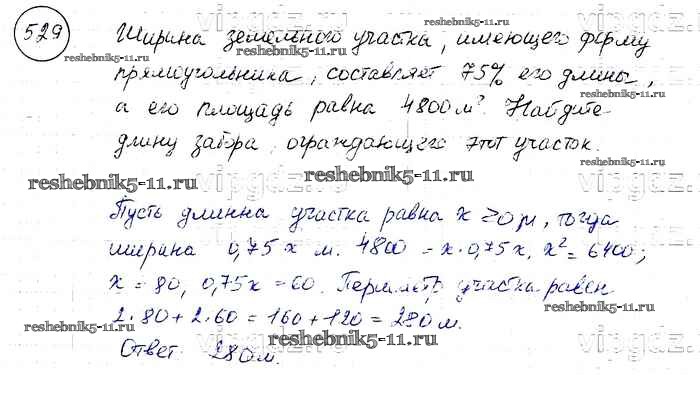 529
Ширина земельного участка, имеющего форму
прямоугольника, составляет 75% его длины,
а его площадь равна 4800м². Найдите
длину забора, ограждающего этот участок.
Пусть длинна участка равна x > 0 м, тогда
ширина 0,75x м. 4800 = x·0,75x, x² = 6400;
x = 80, 0,75x = 60. Периметр участка равен
2·80 + 2·60 = 160 + 120 = 280 м.
Ответ 280 м.
reshebnik5-11.ru
reshebnik5-11.ru
reshebnik5-11.ru
reshebnik5-11.ru
reshebnik5-11.ru
reshebnik5-11.ru
reshebnik5-11.ru
reshebnik5-11.ru
vipgdz.
vipgdz.
vipgdz.
vipgdz.